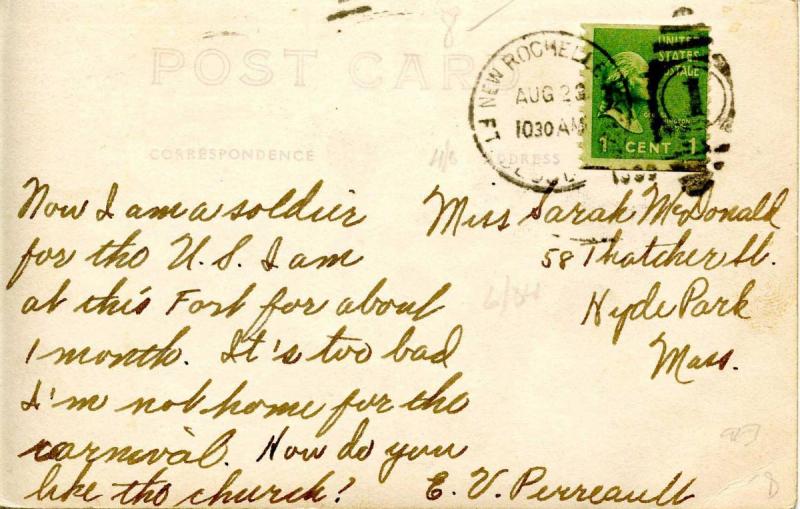 8-
POST CARD
NEW ROCHELLE
FT. SLOCUM
AUG 23
1030 AM
1939
UNITED
STATES
POSTAGE
1 CENT 1
CORRESPONDENCE
ADDRESS
Now I am a soldier
for tho U.S. I am
at this Fort for about
1 month. It's too bad
I'm not home for the
carnival. How do you
like tho church?
E. V. Perreault
Miss Sarah McDonald
58 Thatcher St.
Hyde Park
Mass.
8